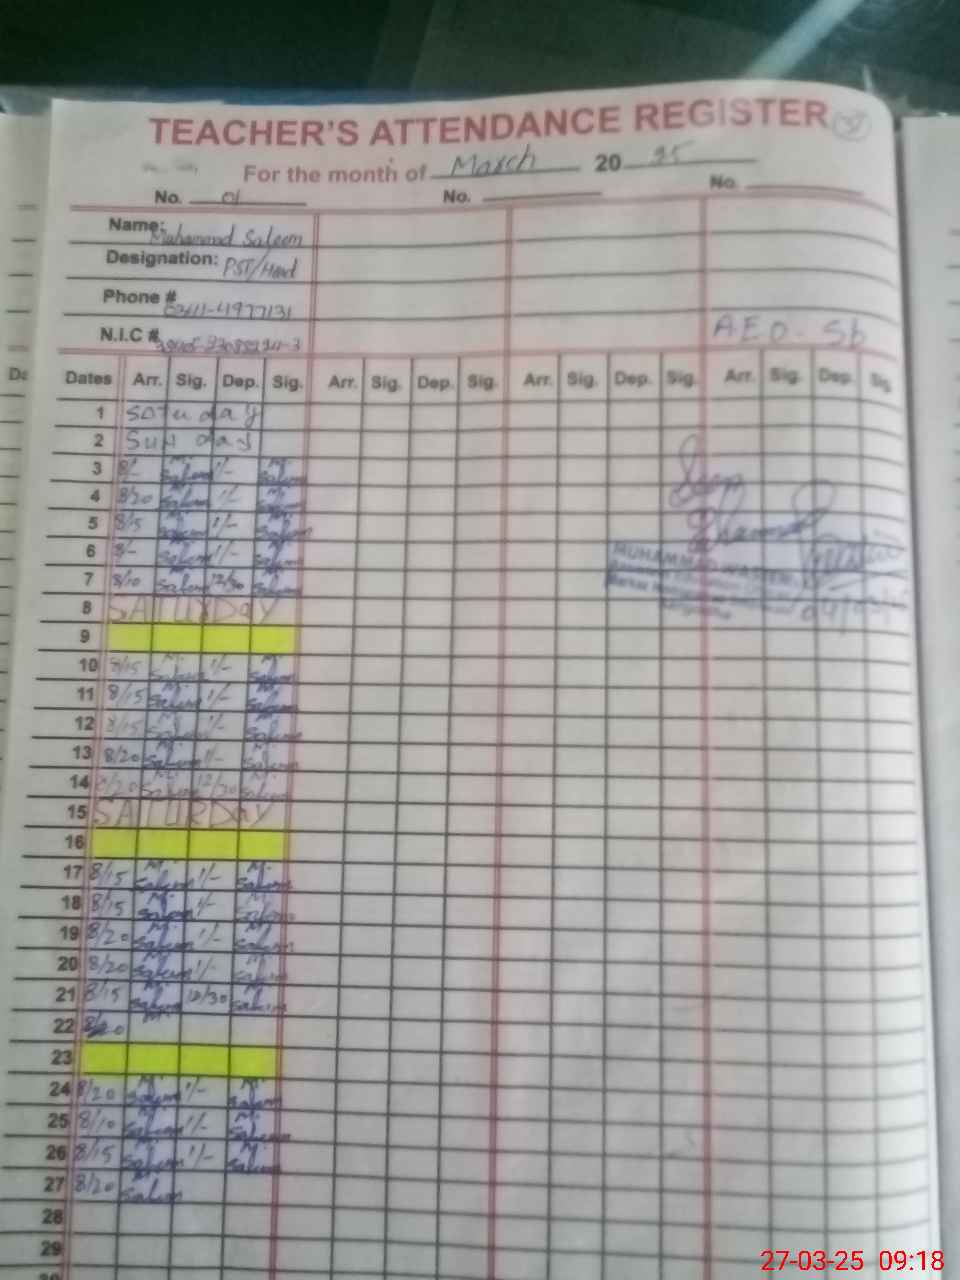 TEACHER'S ATTENDANCE REGISTER
For the month of March 20 25
No. 01 No. No.
Name: Muhammad Saleem
Designation: PST/Head
Phone #
N.I.C #
A.E.O. Sb
Dates Arr. Sig. Dep. Sig. Arr. Sig. Dep. Sig. Arr. Sig. Dep. Sig. Arr. Sig. Dep. Sig.
1 Saturday
2 Sunday
3 8/- M. Saleem 1/- M. Saleem
4 8/20 M. Saleem 1/- M. Saleem
5 8/15 M. Saleem 1/- M. Saleem
6 8/- M. Saleem 1/- M. Saleem
7 8/10 M. Saleem 12/30 M. Saleem
MUHAMMAD WASEEM
8 SATURDAY
9
10 8/15 M. Saleem 1/- M. Saleem
11 8/15 M. Saleem 1/- M. Saleem
12 8/15 M. Saleem 1/- M. Saleem
13 8/20 M. Saleem 1/- M. Saleem
14 8/20 M. Saleem 12/30 M. Saleem
15 SATURDAY
16
17 8/15 M. Saleem 1/- M. Saleem
18 8/15 M. Saleem 1/- M. Saleem
19 8/20 M. Saleem 1/- M. Saleem
20 8/20 M. Saleem 1/- M. Saleem
21 8/15 M. Saleem 12/30 M. Saleem
22 8/20 M.
23
24 8/20 M. Saleem 1/- M. Saleem
25 8/10 M. Saleem 1/- M. Saleem
26 8/15 M. Saleem 1/- M. Saleem
27 8/20 M. Saleem
28
29
27-03-25 09:18